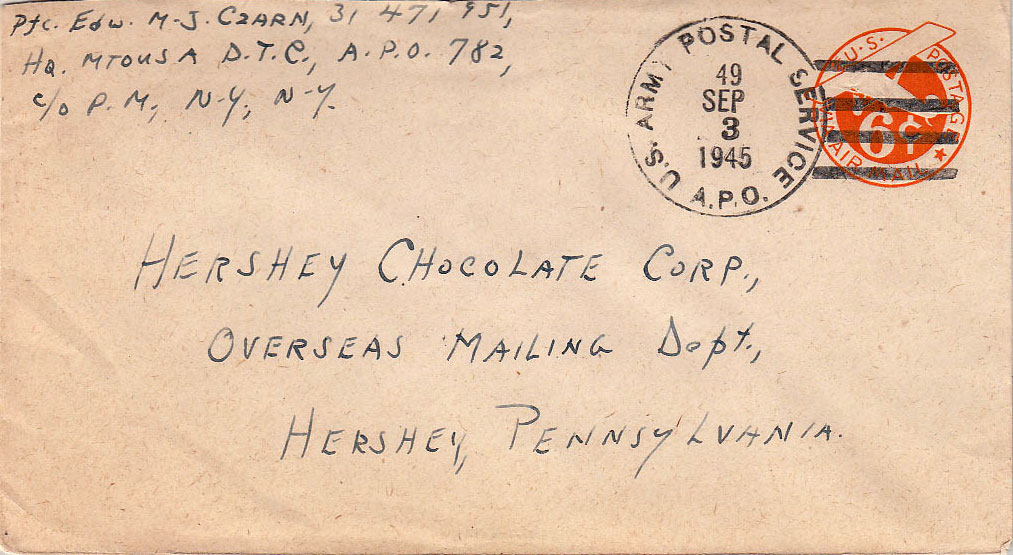 Pfc. Edw. M-J. CZARN, 31 471 951,
HQ. MTOUSA D.T.C., A.P.O. 782,
c/o P.M., N-Y, N-Y.
U.S. ARMY POSTAL SERVICE
49
SEP
3
1945
A.P.O.
U.S. POSTAGE
6¢
VIA AIR MAIL
HERSHEY CHOCOLATE CORP.,
OVERSEAS MAILING Dept.,
HERSHEY, PENNSYLVANIA.